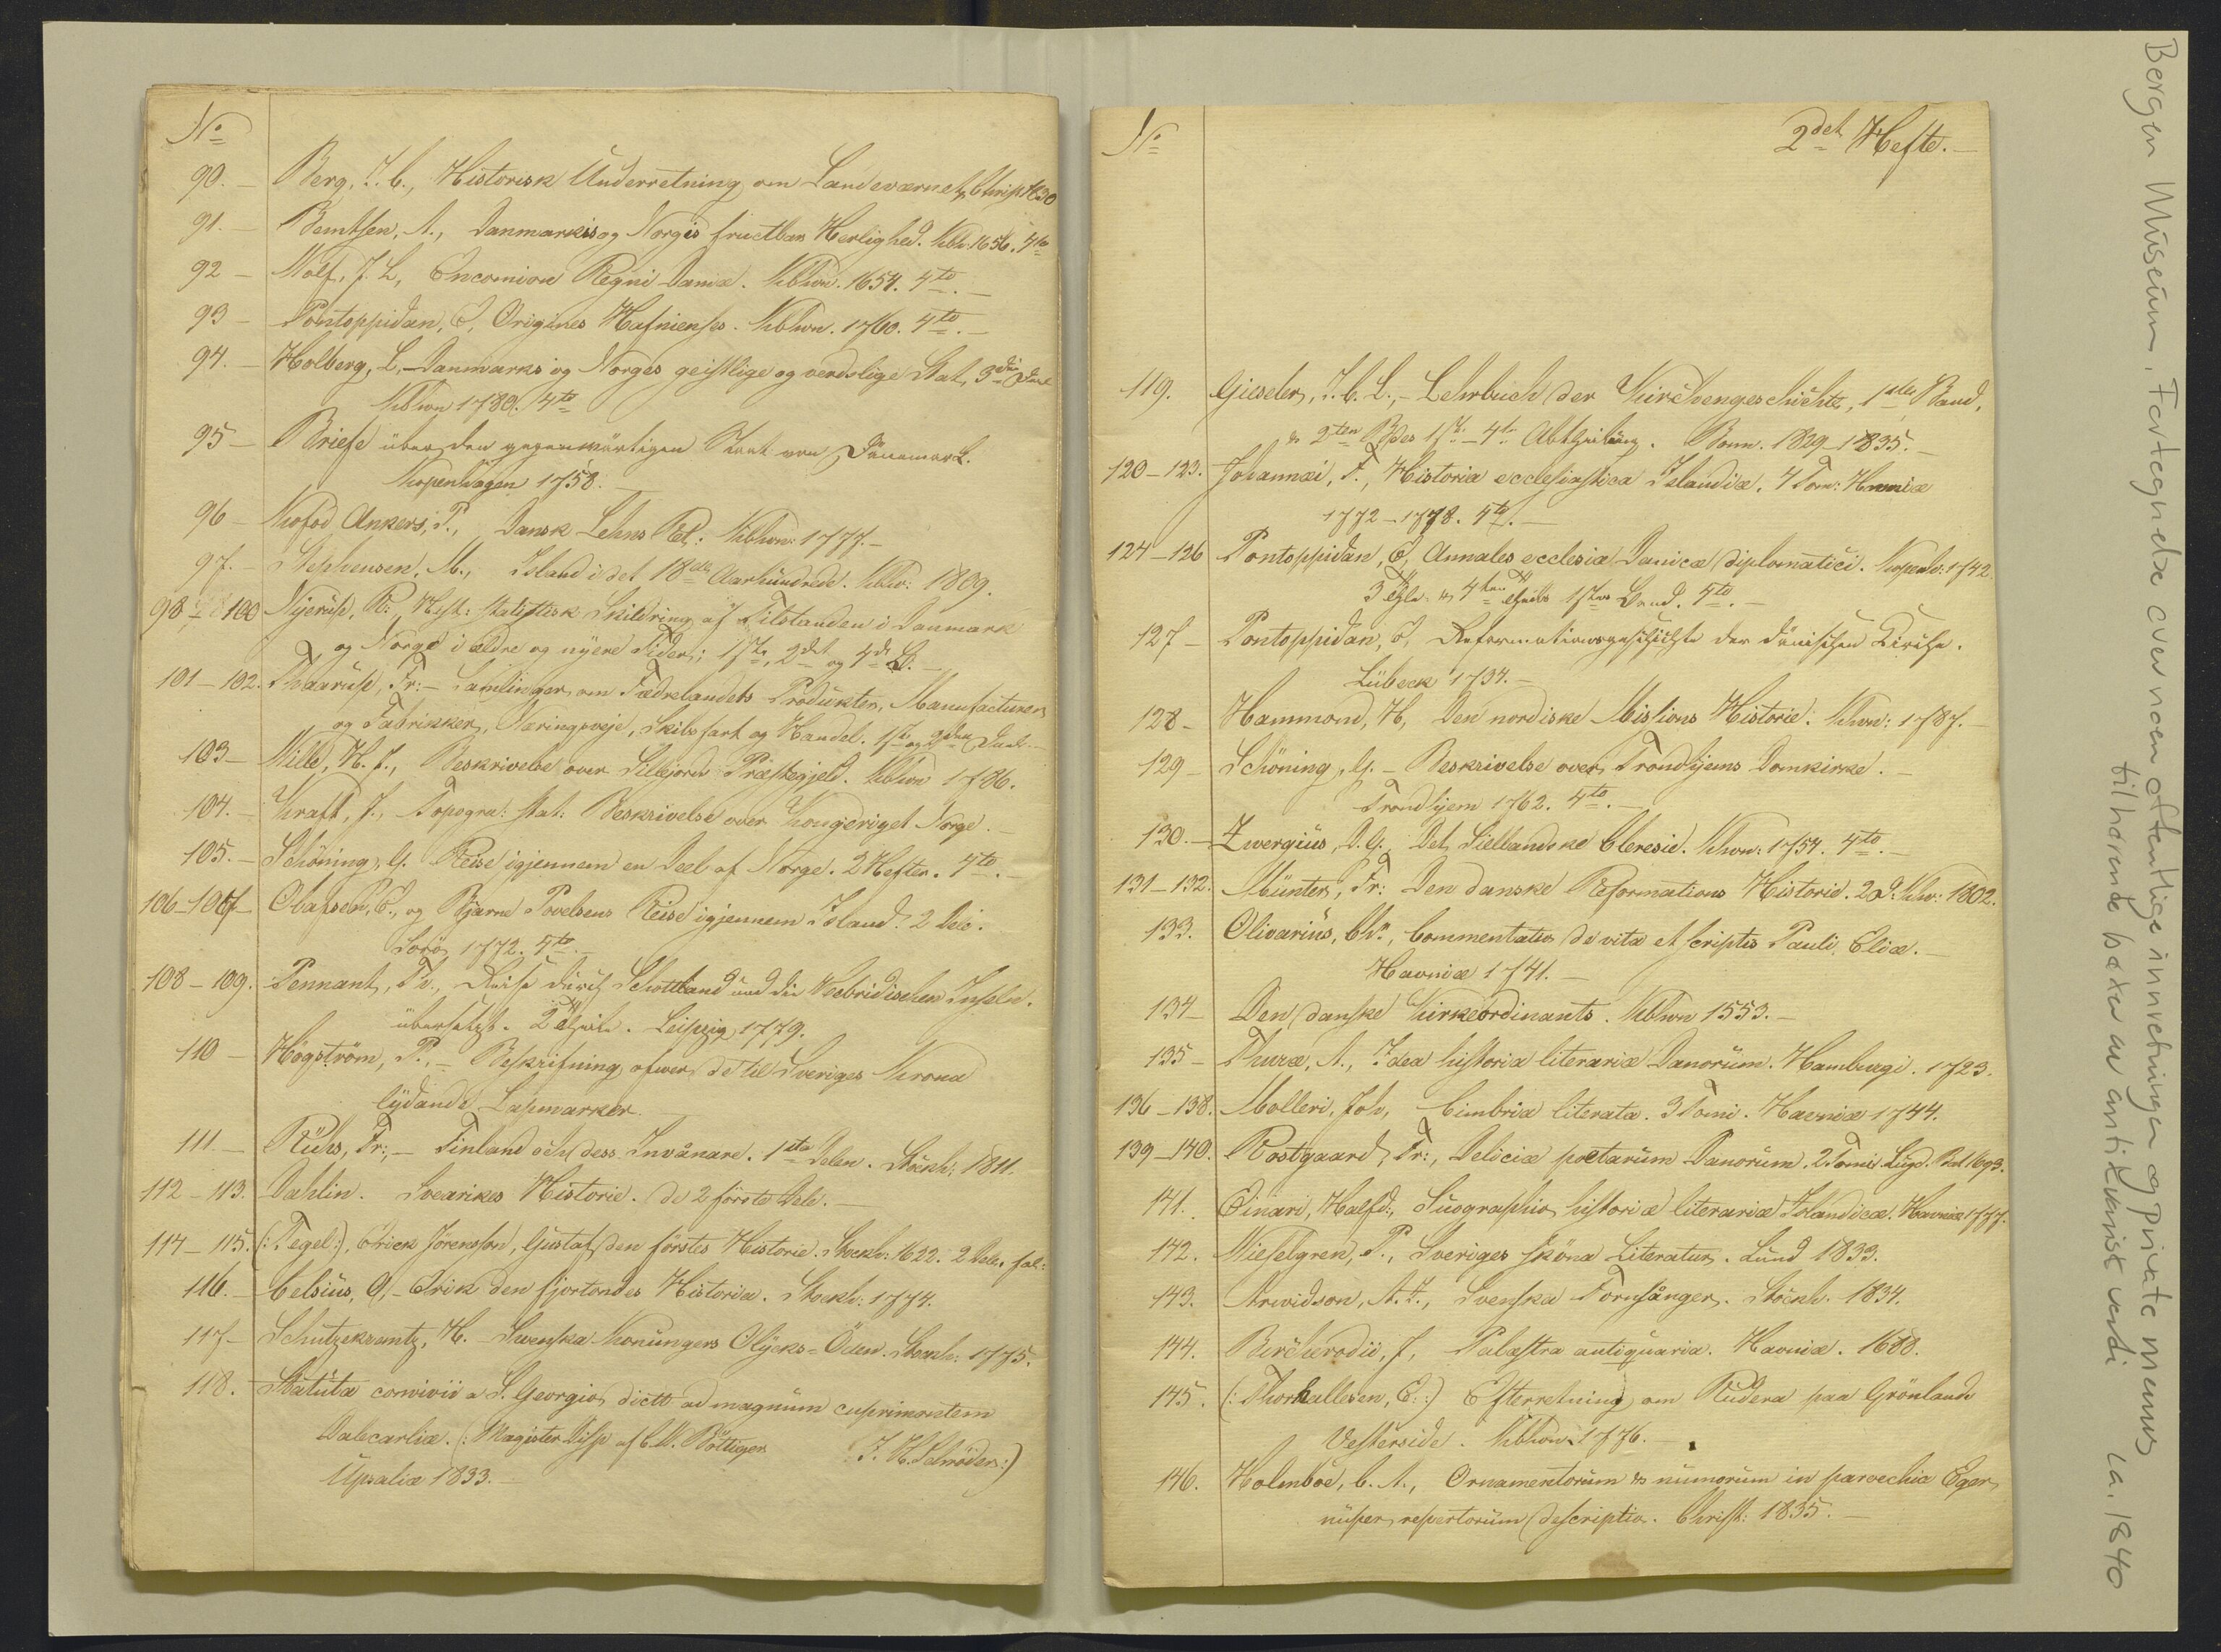 No
90. – Berg, J. C., Historisk Underretning om Landeværnet, Christ. 1830
91. – Berntsen, A., Danmarkis og Norgis fructbar Herlighed. Kbh. 1656. 4to
92 – Wolf, J. L, Encomion Regni Daniæ. Kbhvn. 1654. 4to. –
93 – Pontoppidan, E, Origines Hafnienses. Kbhvn. 1760. 4to. –
94. – Holberg, L. – Danmarks og Norges geistlige og verdslige Stat, 3die
Kbhvn 1780. 4to
95 – Briefe über den gegenwärtigen Staat von Dänemark.
Kopenhagen 1758. –
96 – Kofod Ankers, P., Dansk Lehns Ret: Kbhvn: 1777. –
97. – Stephensen, M., Island i det 18de Aarhundrede. Kbhv: 1809.
98 – 100 Nyerup, R:, Hist: statistisk Skildring af Tilstanden i Danmark
og Norge i ældre og nyere Tider; 1ste, 2det og 4de B. –
101 – 102. Thaarup, Fr: – Samlinger om Fædrelandets Produkter, Manufacturer
og Fabrikker, Næringsveje, Skibsfart og Handel. 1ste og 2den Deel. –
103 – Wille, H. J., Beskrivelse over Sillejords Præstegjeld. Kbhvn 1786.
104. – Kraft, J., Topogra: stat: Beskrivelse over Kongeriget Norge. –
105. – Schöning, G. Reise igjennem en Deel af Norge. 2 Hefter. 4to. –
106 – 107 – Olafsen, E., og Bjarne Povelsens Reise igjennem Island. 2 Dele.
Sorö 1772. 4to. –
108 – 109. Pennant, Th., Reise durch Schottland und die Hebridischen Inseln.
übersetzt. 2 Theile. Leipzig 1779.
110 – Högström, P., – Beskrifning öfwer de til Sveriges Krona
lydande Lapmarker. –
111. – Rühs, Fr:, – Finland och dess Invånare. 1sta Delen. Stockh: 1811.
112 – 113. Dahlin. Svearikes Historie. De 2 förste Dele. –
114 – 115. (: Tegel :), Erick Jöransson, Gustaf den förstes Historie. Stockh: 1622. 2 Dele. fol:
116. – Celsius, O, – Erik den fjortondes Historia. Stockh: 1774.
117 – Schützekrantz, H. – Swenska Konungers Olycks-Öden. Stockh: 1775.
118. Statuta convivii a S. Georgio dicti ad magnum cuprimontem
Dalecarliæ. (: Magister Disp af C. W. Böttiger J. H. Schröder :)
Upsaliæ 1833. –
No
2det Hefte. –
119. Gieseler, J. C. L., – Lehrbuch der Kirchengeschichte, 1ster Band,
& 2ten Bdes 1ste – 4te Abtheilung. Bonn. 1829 – 1835. –
120 – 123. Johannæi, F., Historia ecclesiastica Islandiæ. 4 Tom: Havniæ
1772 – 1778. 4to. –
124 – 126 Pontoppidan, E, Annales ecclesiæ Danicæ diplomatici. Kopenh: 1742.
3 Thle. & 4ten Theils 1ster Band. 4to. –
127 – Pontoppidan, E, Reformationsgeschichte der Dänischen Kirche.
Lübeck 1734. –
128 – Hammond, H, Den nordiske Missions Historie. Khvn: 1787. –
129 – Schöning, G. – Beskrivelse over Trondhjems Domkirke. –
Trondhjem 1762. 4to. –
130. – Zwergius, D. G., Det Siellandske Cleresie. Khvn: 1754. 4to. –
131 – 132. Münter, Fr: Den danske Reformations Historie. 2 D: Khv: 1802.
133. Olivarius, Chr., Commentatio de vita et scriptis Pauli Eliæ. –
Havniæ 1741. –
134 – Den danske Kirkeordinants. Kbhvn 1553. –
135 – Thuræ, A., Idea historiæ literariæ Danorum. Hamburgi. 1723.
136 – 138. Molleri, Joh, Cimbria literata. 3 Tomi. Havniæ 1744.
139 – 140. Rostgaard, Fr:, Deliciæ poetarum Danorum. 2 Tomi. Lugd. Bat 1693.
141. Einari, Halfd:, Sciographia historiæ literariæ Islandicæ. Havniæ 1777.
142. Wieselgren, P., Sveriges sköna Literatur. Lund 1833.
143. Arwidson, A. I., Svenska Fornsånger. Stockh. 1834.
144. Bircherodii, J, Palæstra antiquaria. Havniæ. 1688.
145. (: Thorhallesen, E. :) Efterretning om Rudera paa Grönlands
Vesterside. Kbhvn. 1776. –
146. Holmboe, C. A., Ornamentorum & numorum in paroechia Eger
nuper repertorum descriptio. Christ: 1835. –
Bergen Museum, Fortegnelse over noen offentlige innretninger og private menns
tilhørende bøker av antikvarisk verdi ca. 1840